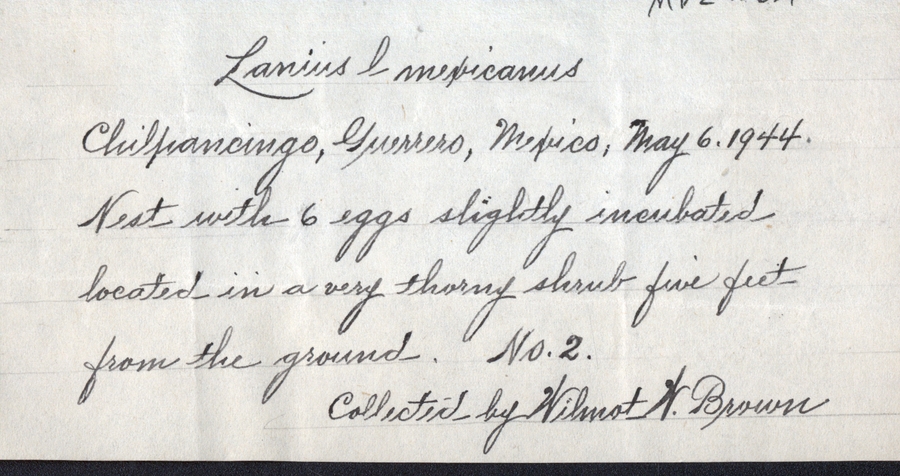 Lanius l mexicanus
Chilpancingo, Guerrero, Mexico, May 6. 1944.
Nest with 6 eggs slightly incubated
located in a very thorny shrub five feet
from the ground. No. 2.
Collected by Wilmot W. Brown